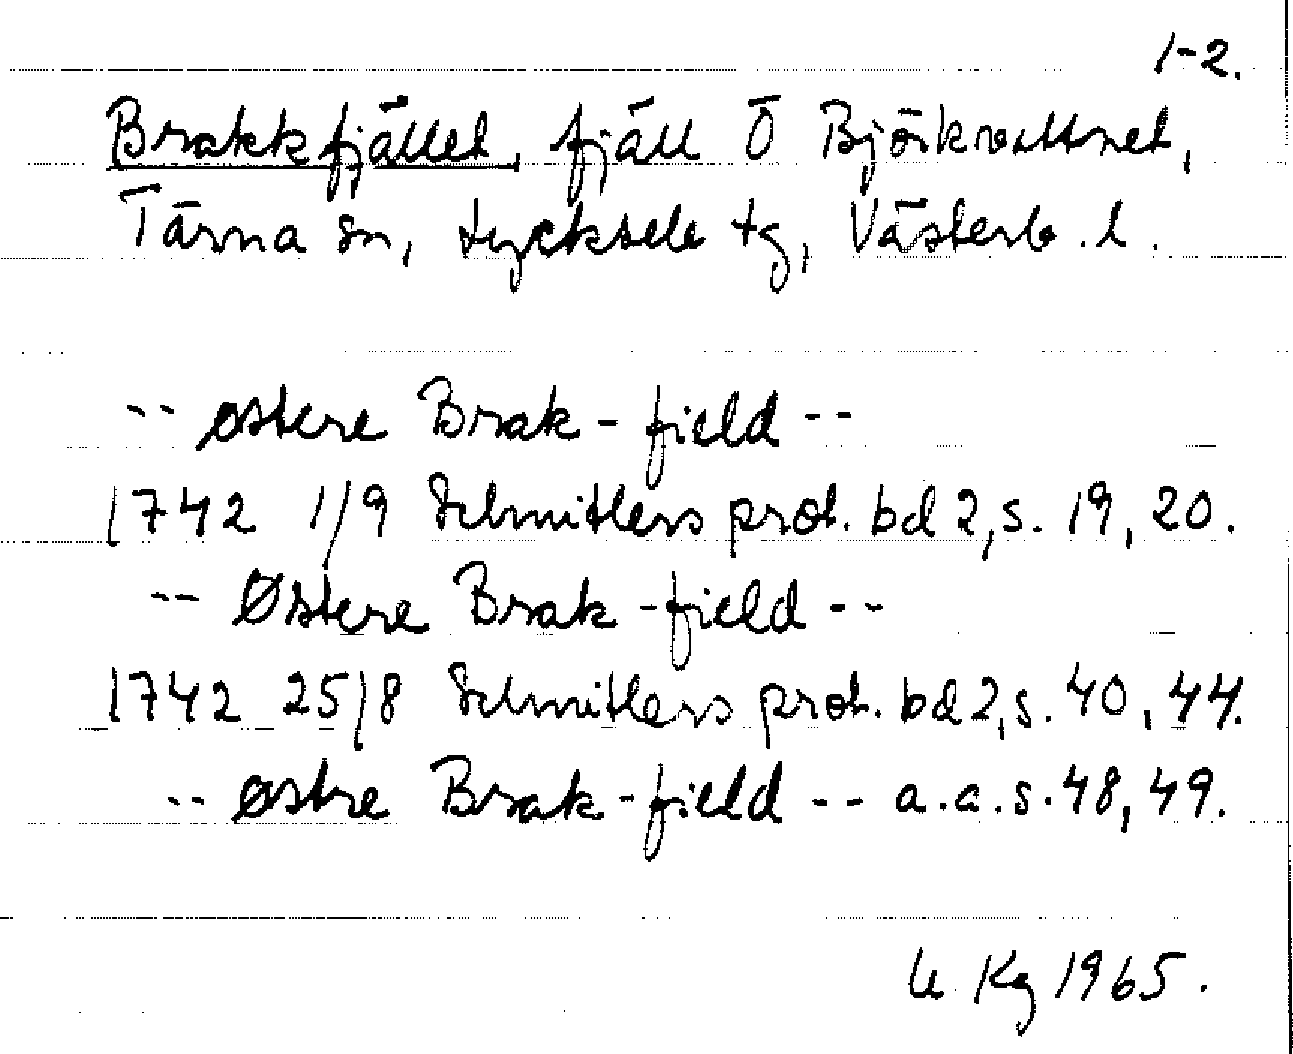 1-2.
Brakkfjället, fjäll Ö Björkvattnet,
Tärna sn, Lycksele tg, Västerb. l.
-- østere Brak-field --
1742 1/9 Schnitlers prot. bd 2, s. 19, 20.
-- Østere Brak-field --
1742 25/8 Schnitlers prot. bd 2, s. 40, 44.
-- østre Brak-field -- a.a.s. 48, 49.
Kg 1965.